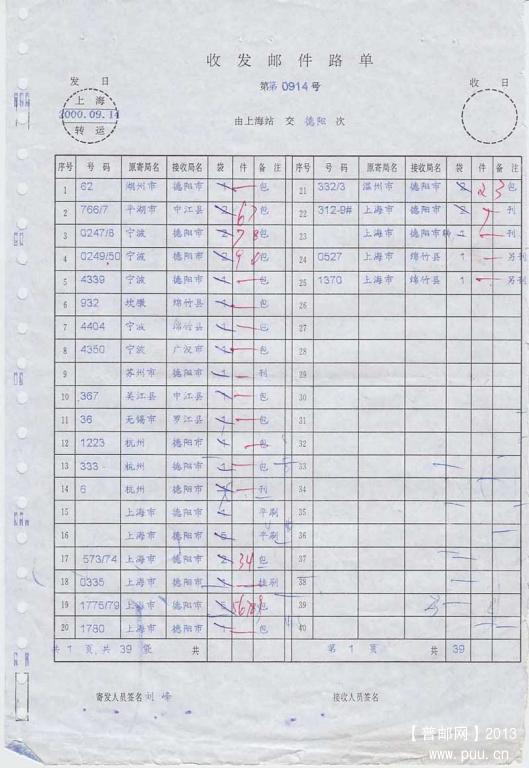 收发邮件路单
发 日
收 日
第 第0914号
上海
2000.09.14
转运
由上海站 交 德阳 次
序号 号码 原寄局名 接收局名 袋 件 备注 序号 号码 原寄局名 接收局名 袋 件 备注
1 62 湖州市 德阳市 包 21 332/3 温州市 德阳市 2 3 包
2 766/7 平湖市 中江县 2 6 7 包 22 312-9# 上海市 德阳市 刊
3 0247/8 宁波 德阳市 2 7 8 包 23 上海市 德阳市 1 刊
4 0249/50 宁波 德阳市 2 9 0 包 24 0527 上海市 绵竹县 1 另刊
5 4339 宁波 德阳市 包 25 1370 上海市 绵竹县 1 另刊
6 932 坎墩 绵竹县 包 26
7 4404 宁波 绵竹县 包 27
8 4350 宁波 广汉市 包 28
9 苏州市 德阳市 刊 29
10 367 吴江县 中江县 包 30
11 36 无锡市 罗江县 包 31
12 1223 杭州 德阳市 包 32
13 333 杭州 德阳市 包 33
14 6 杭州 德阳市 刊 34
15 上海市 德阳市 平刷 35
16 上海市 德阳市 平刷 36
17 573/74 上海市 德阳市 2 3 4 包 37
18 0335 上海市 德阳市 挂刷 38
19 1775/79 上海市 德阳市 5 5 6 7 8 9 包 39
20 1780 上海市 德阳市 1 包 40
共 1 页,共 39 袋 共 第 1 页 共 39
寄发人员签名 刘峰 接收人员签名
【普邮网】2013
www.puu.cn